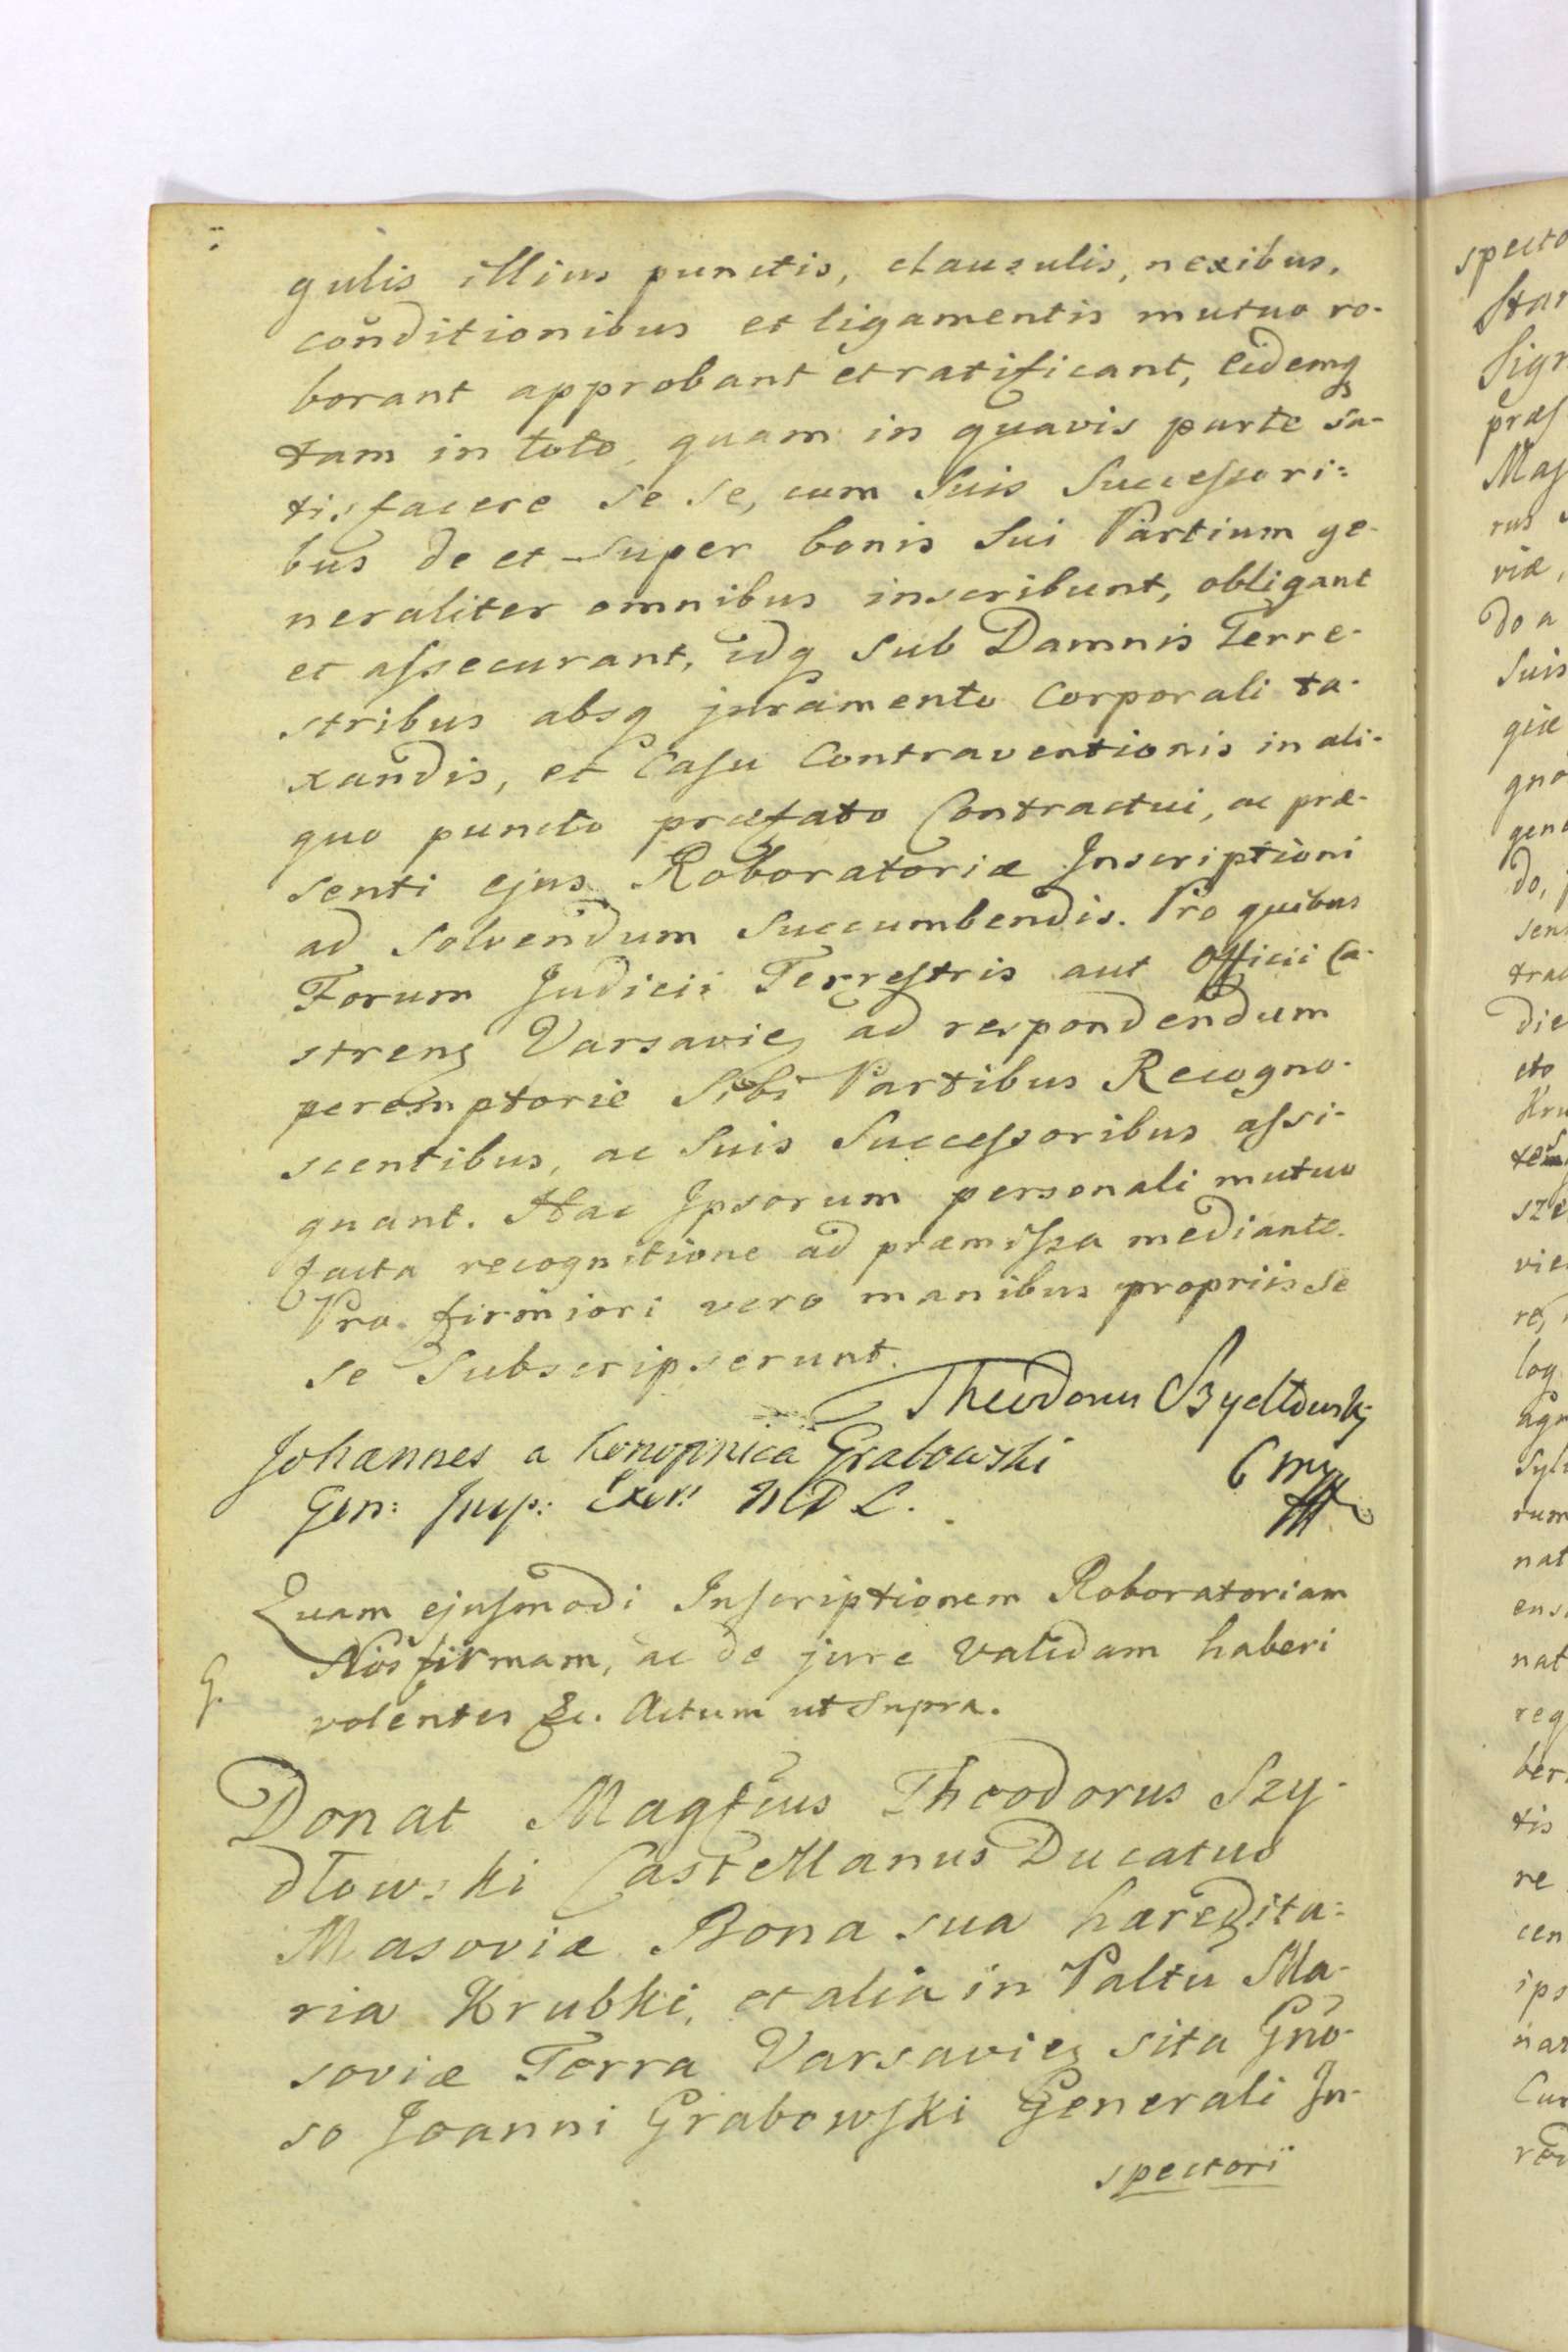 gulis illius punctis, clausulis, nexibus,
conditionibus et ligamentis mutuo ro-
borant approbant et ratificant, eidemq
tam in toto, quam in quavis parte sa-
tisfacere se se, cum Suis Successori=
bus de et super bonis Sui Partium ge-
neraliter omnibus inscribunt, obligant
et assecurant, idq Sub Damnis Terre-
stribus absq juramento Corporali ta-
xandis, et Casu Contraventionis in ali-
quo puncto præfato Contractui, ac præ-
senti ejus Roboratoriæ Inscriptioni
ad Solvendum Succumbendis. Pro quibus
Forum Judicii Terrestris aut Officii Ca-
streng Varsavieg ad respondendum
peremptorie Sibi Partibus Recogno-
scentibus, ac Suis Successoribus assi-
gnant. Hac Ipsorum personali mutuo
facta recognitione ad præmissa mediante.
Pro firmiori vero manibus propriis Se
se Subscripserunt.
Theodorus Szydłowski
Johannes a Konopnica Grabowski
C M
Gen: Insp: Exer: M D L.
Quam ejusmodi Inscriptionem Roboratoriam
Nos firmam, ac de jure Validam haberi
G.
volentes &c. Actum ut Supra.
Donat Magfcus Theodorus Szy-
dłowski Castellanus Ducatus
Masoviæ Bona sua hæredita=
ria Krubki, et alia in Paltu Ma-
soviæ Terra Varsavieg sita Gno-
so Joanni Grabowski Generali In-
spectori
spectо
præs
viæ,
do a
Suis
giæ
gno
do,
die
cto
nat
nat
re
cen